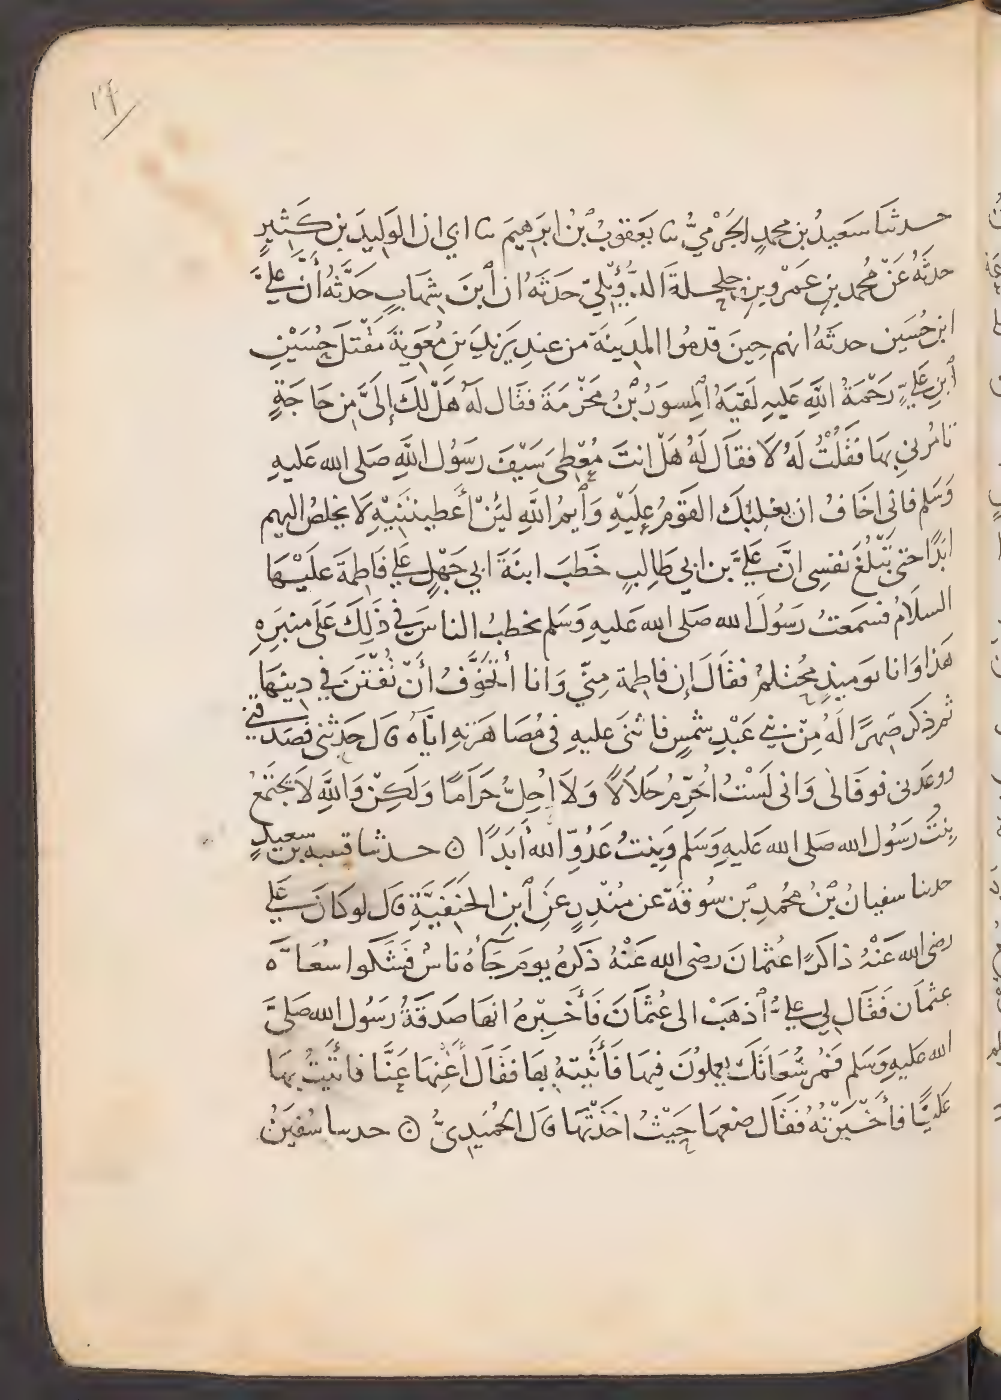 ٢٤
حدثنا سَعِيدُ بن محمدٍ الجَرْمِيُّ ثنا يَعقوبُ بْنُ ابرَهِيمَ ثنا ابي ان الوَلِيدَ بن كَثيرٍ
حدثَهُ عَنْ مُحمد بنِ عَمْروِ بنِ حلحلةَ الدُّؤَلِيّ حَدثَهُ ان ٱبنَ شِهَابٍ حَدَّثَهُ أَنَّ عَلِيَّ
ابنَ حُسَينٍ حدثَهُ انهم حِينَ قدمُوا المدِينَةَ من عندِ يَزيدَ بنِ مُعوِيةَ مَقْتلَ حُسَيْنِ
ٱبنِ عَلِيٍّ رَحْمَةُ اللَّهِ عَلَيهِ لَقيَهُ ٱلمِسوَرُ بْنُ مَخْرَمَةَ فقَال لَهُ هَلْ لكَ إلَىَّ مِن حَاجَةٍ
تامُرُنِي بِهَا فَقُلْتُ لَهُ لَا فقَال لَهُ هَلْ انتَ مُعْطِيَ سَيْفَ رَسُول اللَّهِ صَلى الله عَليهِ
وَسَلم فاني اخَافُ ان يغلِبَكَ القَومُ عَلَيْهِ وَأيمُ اللَّهِ لَئِنْ أَعطَيتَنيهِ لَا يخلصُ اليهم
ابَدًا حتى تَبْلُغَ نفسِي انَّ عَلِيَّ بن ابي طَالِبٍ خَطَبَ ابنَةَ ابي جَهْلٍ عَلَى فَاطِمَةَ عليْهَا
السلَامُ فسَمعتُ رَسُولَ الله صَلى الله عَليهِ وَسَلم يخطبُ الناسَ في ذَلِكَ عَلَى منبَرِهِ
هَذا وَانا يوميذٍ مُحتلمٌ فقَالَ إن فاطِمة مِنّي وَانا أتَخَوَّفُ أَنْ تُفْتَنَ في دينِهَا
ثم ذكرَ صِهرًا لَهُ مِنْ بني عَبْدِ شَمسٍ فاثنى عليهِ في مُصَاهَرَتِهِ ايّاهُ قال حَدثني فصَدقني
ووعَدني فوفَاني وَاني لَسْتُ أُحَرِّمُ حَلَالًا وَلَا اُحِلُّ حَرَامًا وَلَكِنْ وَاللَّهِ لَا تَجْتَمعُ
بِنتُ رَسُول الله صَلى الله عَليهِ وَسَلم وَبِنتُ عَدُوِّ الله أَبَدًا ۞ حدثنا قتيبه بن سعيدٍ
حدثنا سفيانُ بْنُ مُحمدِ بْنِ سُوقَةَ عن مُنْذِرٍ عَنِ ٱبنِ الحَنفيَّةِ قال لوكَانَ عَلِي
رضى الله عَنْهُ ذاكرًا عُثمانَ رضى الله عَنْهُ ذَكَرَهُ يومَ جَآءَهُ ناسٌ فشَكَوا سُعَاةَ
عثمَان فَقَال لي عَلِيٌّ ٱذهَبْ الى عُثمَانَ فَأَخبِرْهُ انهَا صَدقَةُ رَسُول الله صَلىَّ
الله عَليهِ وَسَلم فَمُرْ سُعَاتَكَ يعملونَ فيهَا فَأَتيتهُ بهَا فقَالَ أَغْنِهَا عَنَّا فاتَيتُ بهَا
عَليًّا فأَخْبَرْتهُ فَقَال ضعهَا حَيْثُ اخَذْتهَا قال الحُمَيدِيُّ ۞ حدثنا سُفيَنُ